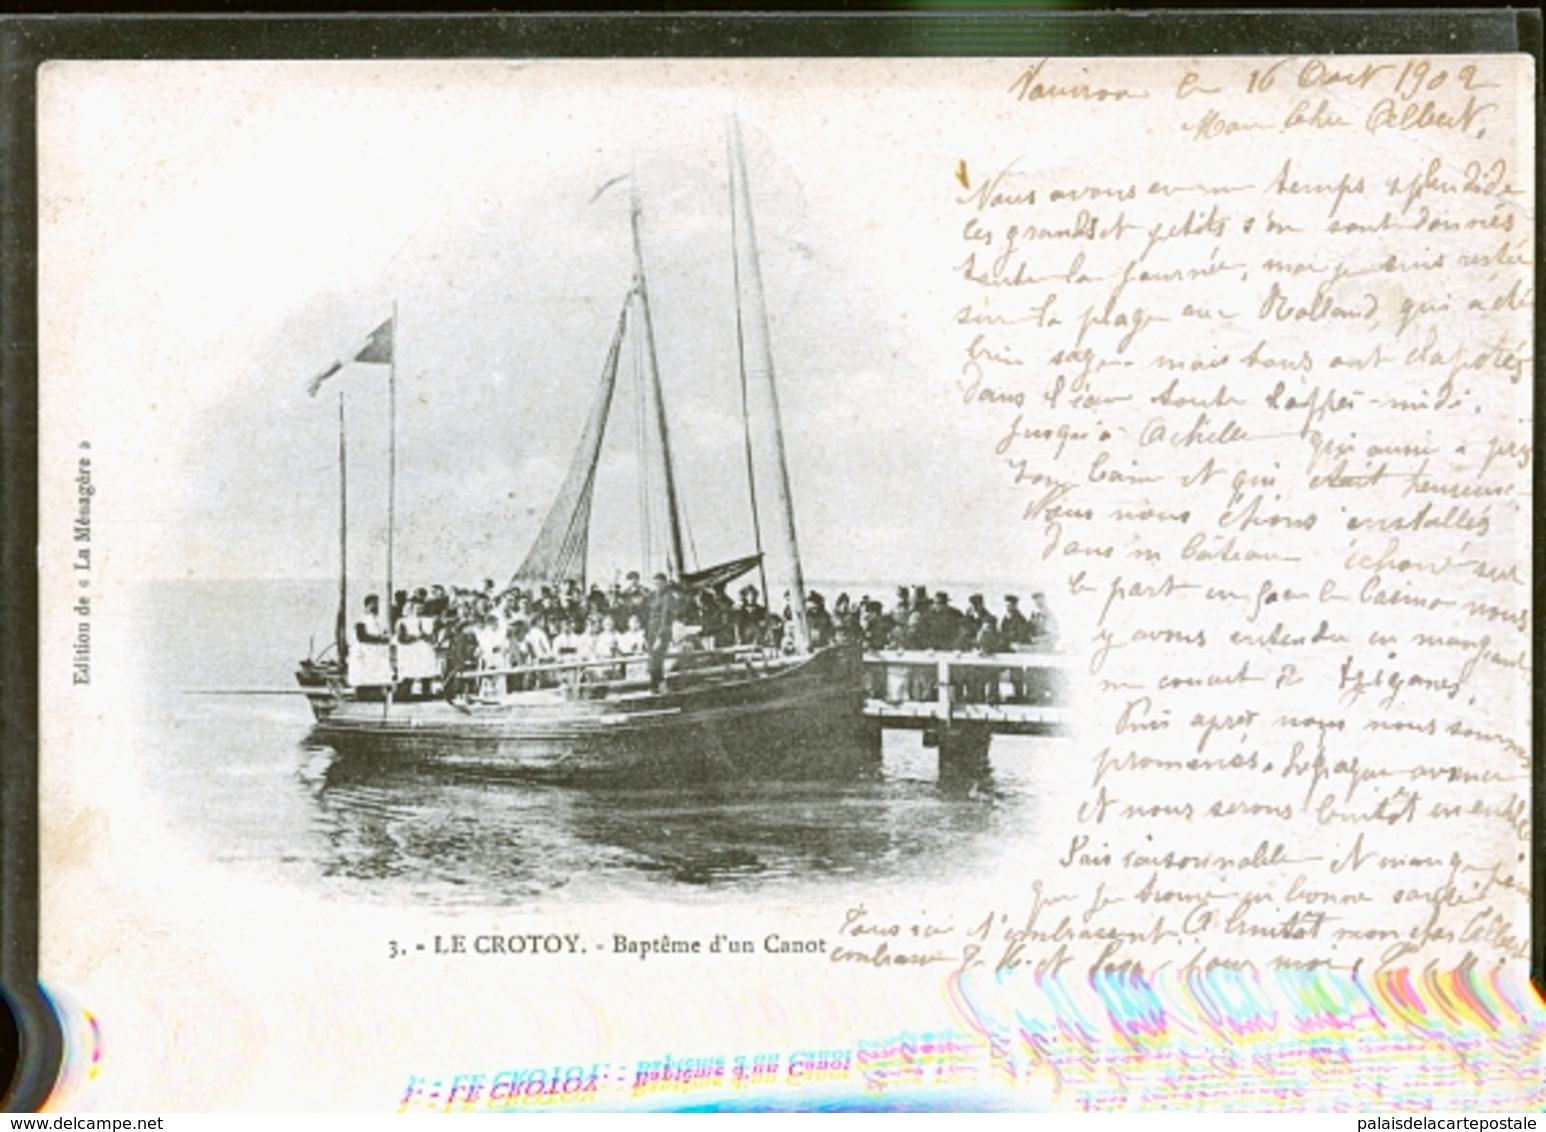 le 16 Août 1902
Mon Cher Albert,
Nous avons eu un temps splendide
les grands et petits s'en sont donnés
toute la journée, moi je suis restée
sur la plage avec Rolland, qui a été
bien sage mais tous ont clapotés
dans l'eau toute l'après-midi.
Jusqu'à Achille qui aussi a pris
son bain et qui était heureuse.
Nous nous étions installés
dans un bâteau échoué sur
le port en face le Casino nous
y avons entendu en mangeant
un concert de tsiganes.
Puis après nous nous sommes
promenés. avance
et nous serons bientôt ensemble
Sois raisonnable et mange pour
que je trouve en bonne santé
Tous ici t'embrassent. A bientôt mon cher Albert
embrasse pour moi
Edition de « La Ménagère »
3. - LE CROTOY. - Baptême d'un Canot
3. - LE CROTOY. - Baptême d'un Canot
www.delcampe.net
palaisdelacartepostale